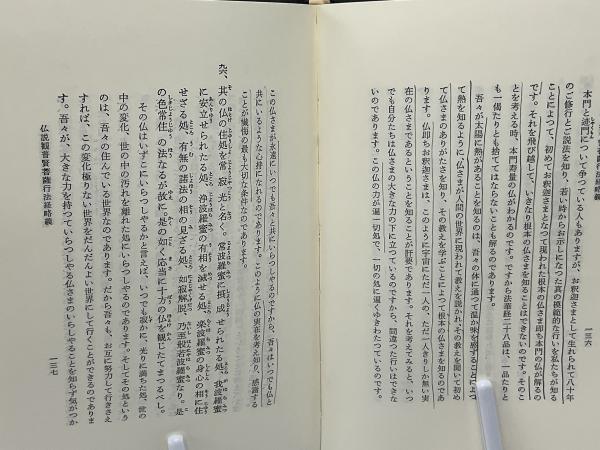 一三六
本門と迹門について争っている人もありますが、お釈迦さまとして生れられて八十年
のご修行とご説法を知り、若い時からお示しになった真の模範的な行いを私たちが知る
ことによって、初めてお釈迦さまとなって現われた根本の仏さま即ち本門の仏が解るの
です。それを飛び越して、いきなり根本の仏さまを知ることはできないのです。そのこ
とを考える時、本門寿量の仏がわかるのです。ですから法華経二十八品は、一品たりと
も一偈たりとも捨ててはならないことも解るのであります。
吾々が太陽に熱があることを知るのは、吾々の体に通って温か味を感ずることによっ
て熱を知るように、仏さまが人間の世界に現われて教えを説かれ、その教えを聞いて初め
て仏さまのありがたさを知り、その教えを学ぶことによって根本の仏さまを知るのであ
ります。仏即ちお釈迦さまは、このように宇宙にただ一人の、ただ一人きりしか無い実
在の仏さまであるということを知ることが肝要であります。それを考えてみると、いつ
でも自分たちは仏さまの大きな力の下に立っているのですから、間違った行いはできな
いのであります。この仏の力が遍一切処で、一切の処に遍くゆきわたっているのです。
この仏さまが永遠にいつでも吾々と共にいらっしゃるのですから、吾々はいつでも仏と
共にいるような心持になれるのであります。このように仏の実在を考え知り、感謝する
ことが懺悔の最も大切な条件なのであります。
九六、其の仏の住処を常寂光と名く。常波羅蜜に摂成せられたる処、我波羅蜜
に安立せられたる処、浄波羅蜜の有相を滅せる処、楽波羅蜜の身心の相に住
せざる処、有無の諸法の相の見ざる処、如寂解脱、乃至般若波羅蜜なり。是
の色常住の法なるが故に。是の如く応当に十方の仏を観じたてまつるべし。
その仏はいずこにいらっしゃるかと言えば、いつでも寂かに、光りに満ちた処、世の
中の変化、世の中の汚れを離れた処にいらっしゃるのであります。そしてその処という
のは、吾々の住んでいる世界なのであります。だから吾々も、お互に努力して行きさえ
すれば、この変化極りない世界をだんだんよい世界にして行くことができるのでありま
す。吾々が、大きな力を持っていらっしゃる仏さまのいらしゃることを知らず気がつか
仏説観普賢菩薩行法経略義
一三七